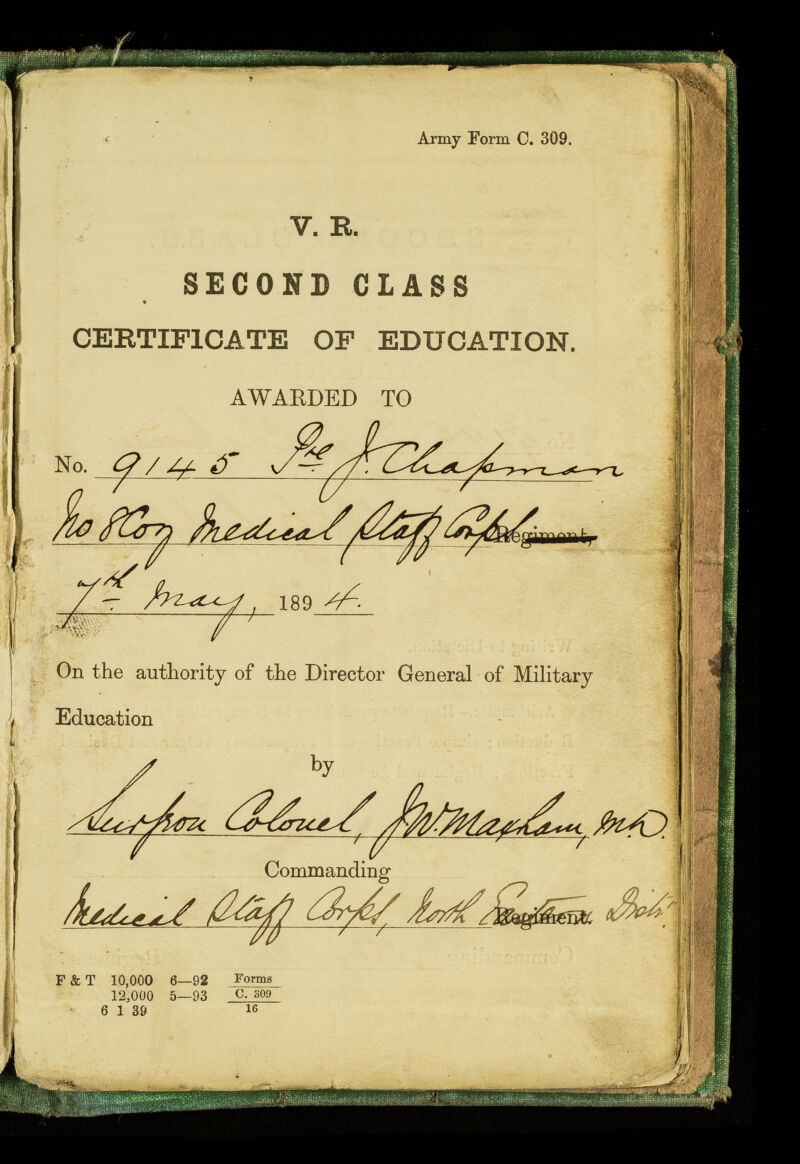 Army Form C. 309.
V. R.
SECOND CLASS
CERTIFICATE OF EDUCATION.
AWARDED TO
No. 9145 Pte J. Chapman
No 8 Coy Medical Staff Corps Regiment,
7th May, 1894.
On the authority of the Director General of Military
Education
by
Surgeon Colonel, J.W. Maxham, MD.
Commanding
Medical Staff Corps, North Eastern Regiment. Distr.
F & T 10,000 6—92 Forms
12,000 5—93 C. 309
6 1 39 16